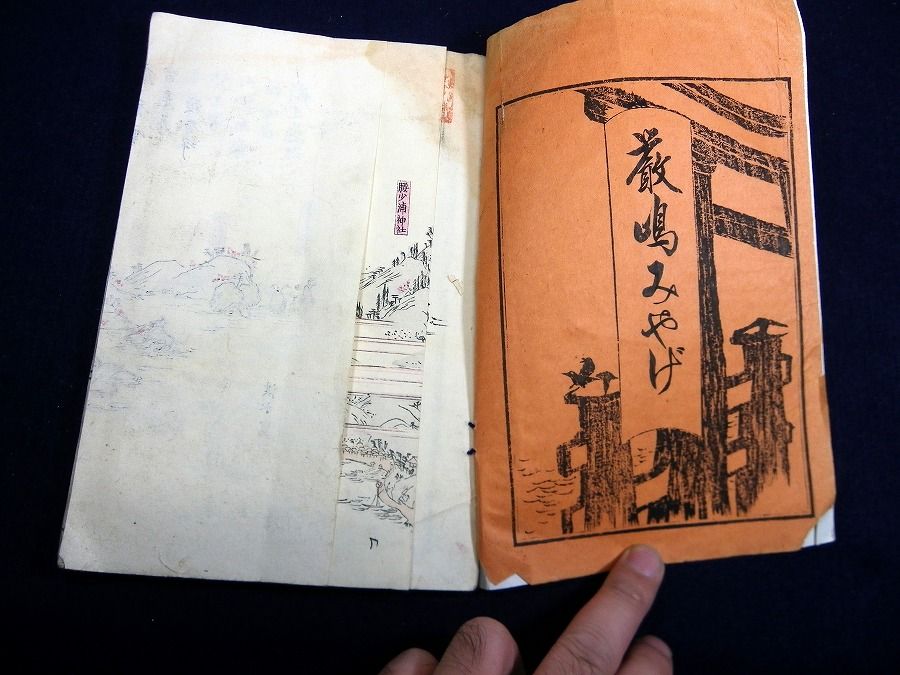 嚴嶋みやげ
腰少浦神社